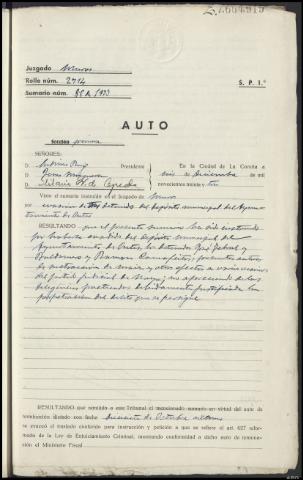 Juzgado Muros
Rollo núm. 2714
Sumario núm. 1933
S. P. 1.º
AUTO
Sección primera
SEÑORES:
D. Presidente
D.
D. Hilario
En la Ciudad de La Coruña a
seis de Diciembre de mil
novecientos treinta y tres
Visto el sumario instruído en el Juzgado de Muros
por evasión de detenidos del depósito municipal del Ayun-
tamiento de Outes
RESULTANDO que el presente sumario ha sido instruido
por haberse evadido del depósito municipal del
Ayuntamiento de Outes, los detenidos José
y Ramon presuntos autores
de sustracción de maiz y otros efectos a varios vecinos
del partido judicial de Muros; no apareciendo de las
diligencias practicadas debidamente justificada la
perpetración del delito que se persigue
RESULTANDO que remitido a este Tribunal el mencionado sumario en virtud del auto de
terminación dictado con fecha de Octubre último
se evacuó el traslado conferido para instrucción y petición a que se refiere el art. 627 refor-
mado de la Ley de Enjuiciamiento Criminal, mostrando conformidad a dicho auto de termina-
ción el Ministerio Fiscal